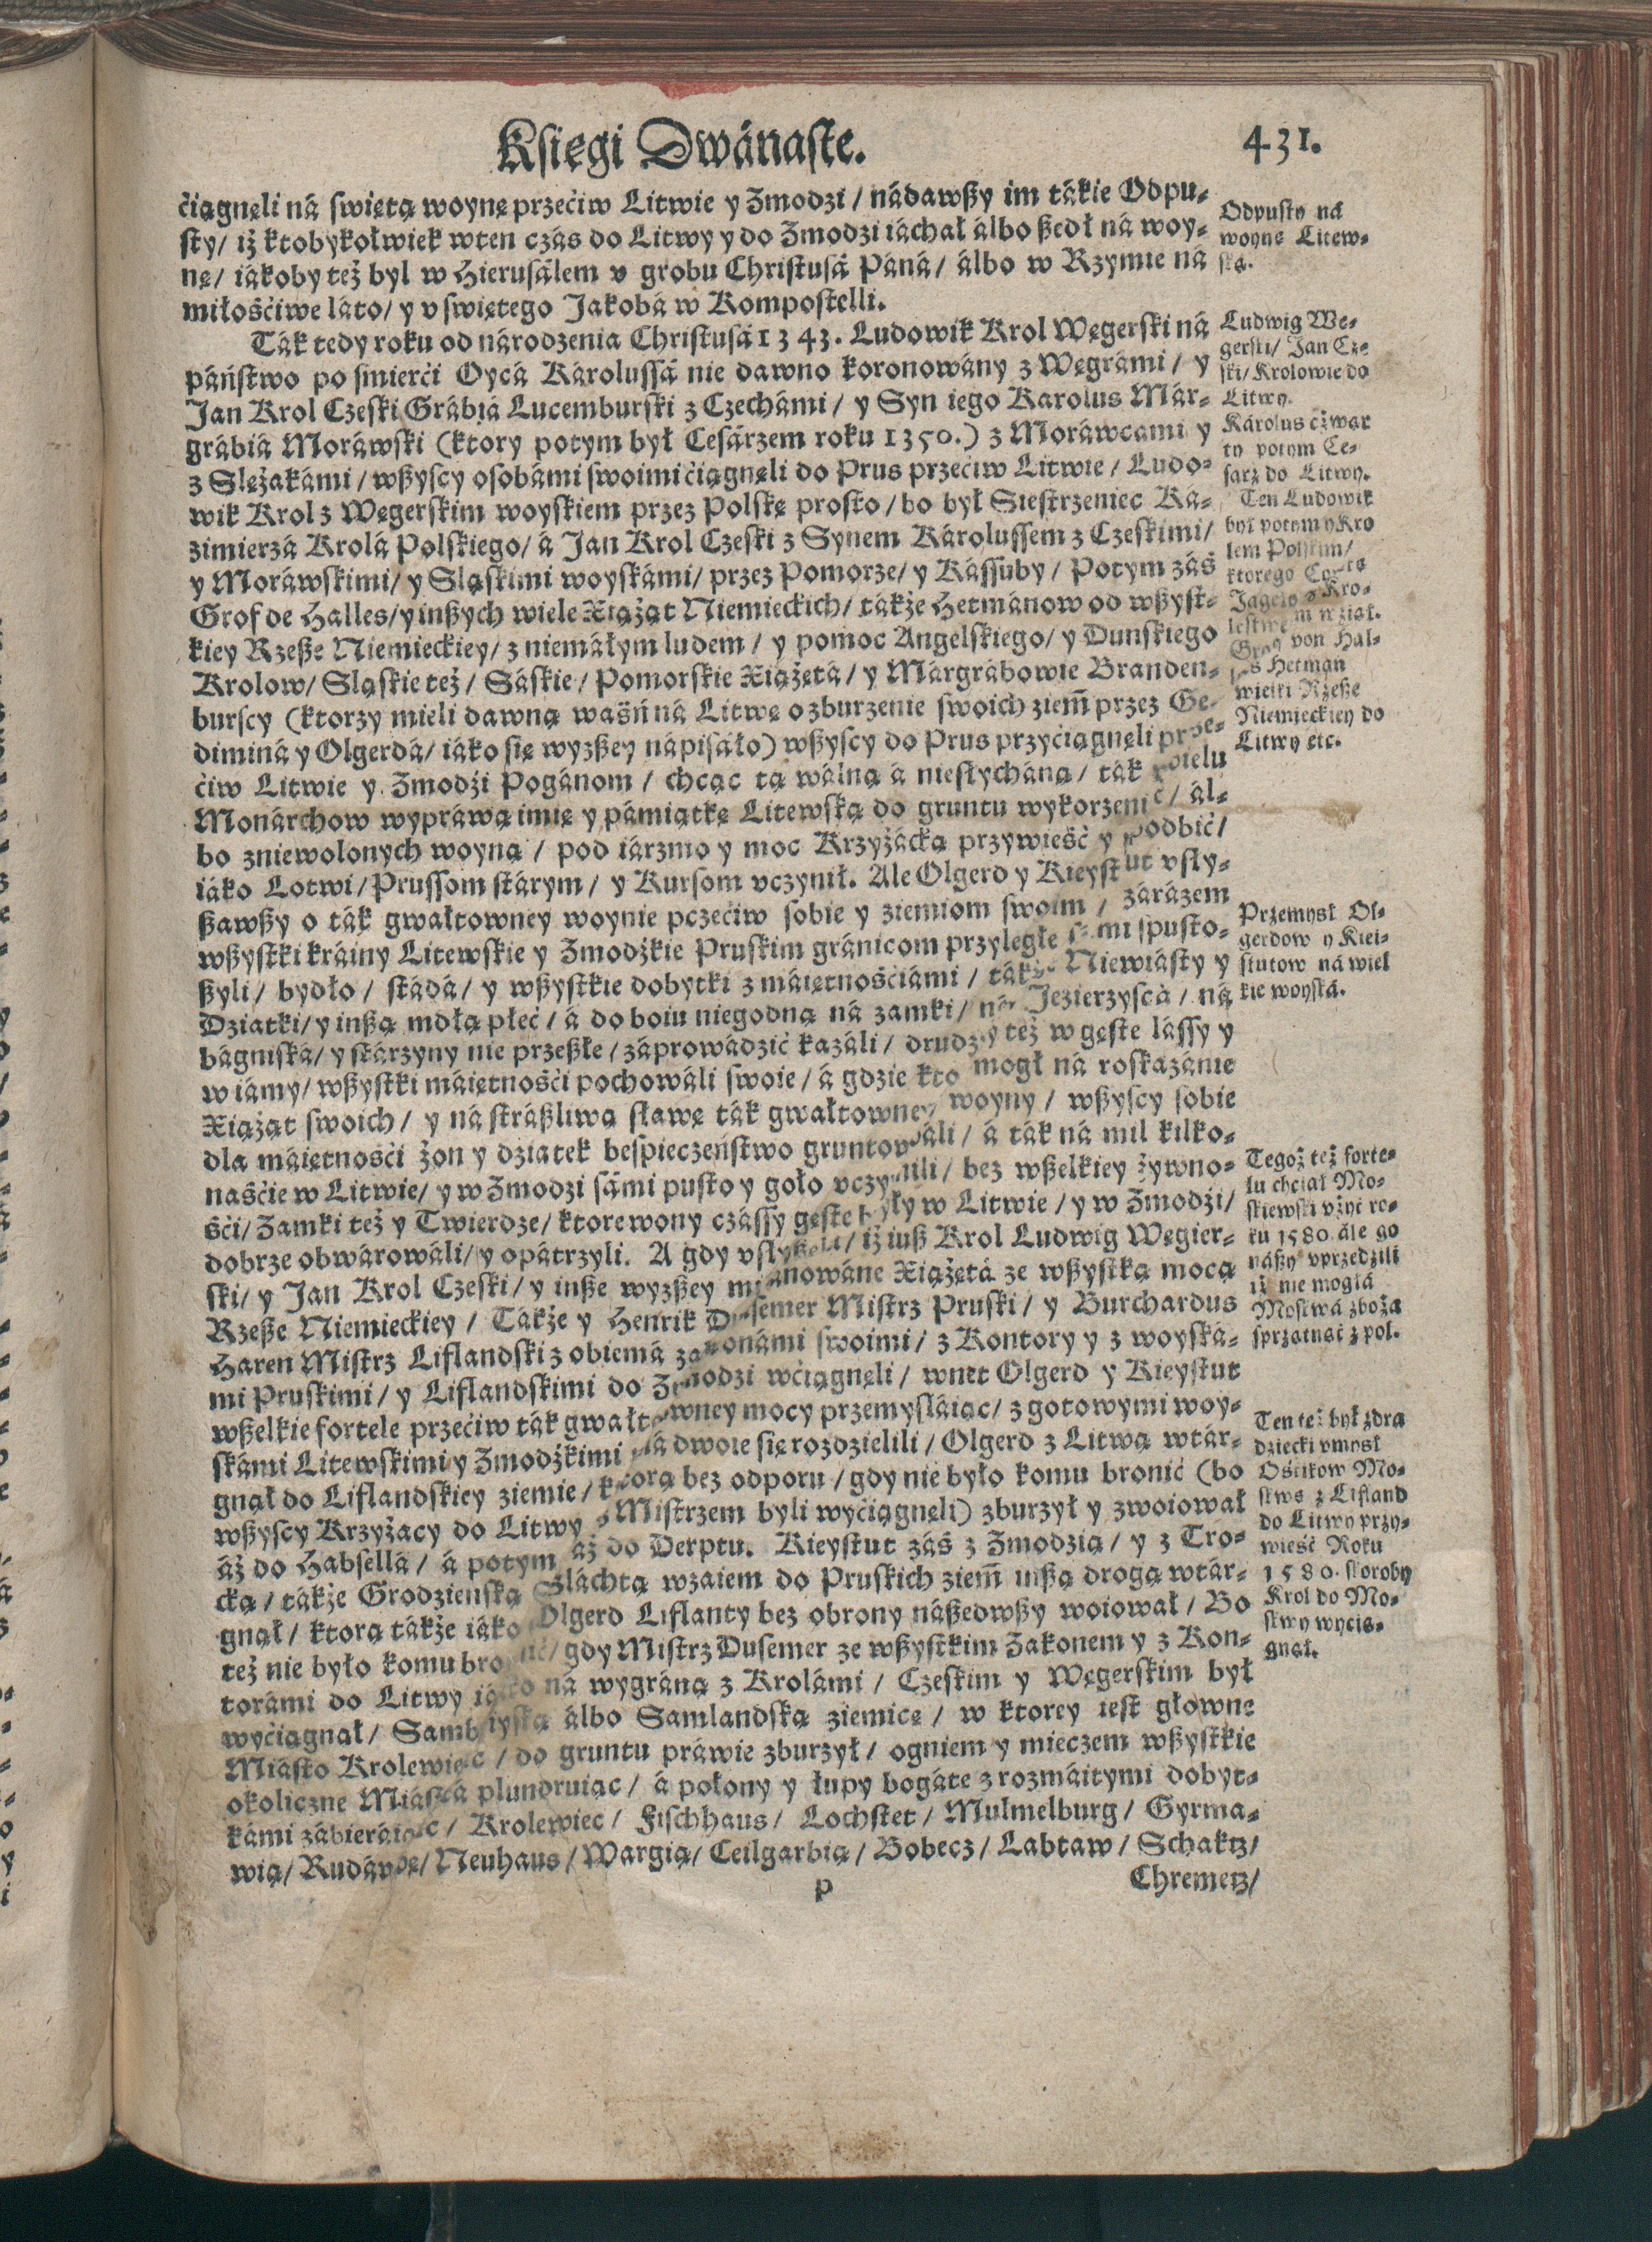 Księgi Dwánaste.
431.
ćiągnęli ná swiętą woynę przećiw Litwie y Zmodzi / nádawszy im tákie Odpu-
sty / iż ktobykołwiek wten czás do Litwy y do Zmodzi iáchał álbo szedł ná woy-
nę / iákoby też byl w Hierusálem v grobu Christusá Páná / álbo w Rzymie ná
miłośćiwe láto / y v swiętego Jakobá w Kompostelli.
Ták tedy roku od národzenia Christusá 1343. Ludowik Krol Węgerski ná
páństwo po smierći Oycá Károlussá nie dawno koronowány z Węgrámi / y
Jan Krol Czeski Grábiá Lucemburski z Czechámi / y Syn iego Karolus Már-
grábiá Moráwski (ktory potym był Cesárzem roku 1350.) z Moráwcami y
z Slężakámi / wszyscy osobámi swoimi ćiągnęli do Prus przećiw Litwie / Ludo-
wik Krol z Węgerskim woyskiem przez Polskę prosto / bo był Siestrzeniec Ká-
zimierzá Krolá Polskiego / á Jan Krol Czeski z Synem Károlussem z Czeskimi /
y Moráwskimi / y Sląskimi woyskámi / przez Pomorze / y Kássuby / Potym zás
Grof de Halles / y inszych wiele Xiążąt Niemieckich / tákże Hetmánow od wszyst-
kiey Rzesze Niemieckiey / z niemáłym ludem / y pomoc Angelskiego / y Dunskiego
Krolow / Sląskie też / Sáskie / Pomorskie Xiążętá / y Márgrábowie Branden-
burscy (ktorzy mieli dawną waśń ná Litwę o zburzenie swoich ziem̃ przez Ge-
diminá y Olgerdá / iáko się wyzszey nápisáło) wszyscy do Prus przyćiągnęli prze-
ćiw Litwie y Zmodźi Pogánom / chcąc tą wálną á niesłycháną / ták wielu
Monárchow wypráwą imię y pámiątkę Litewską do gruntu wykorzenić / ál-
bo zniewolonych woyną / pod iárzmo y moc Krzyżácką przywieść y podbić /
iáko Lotwi / Prussom stárym / y Kursom vczynił. Ale Olgerd y Kieystut vsły-
szawszy o ták gwałtowney woynie pczećiw sobie y ziemiom swoim / zárázem
wszystki kráiny Litewskie y Zmodźkie Pruskim gránicom przyległe sámi spusto-
szyli / bydło / stádá / y wszystkie dobytki z máiętnośćiámi / tákże Niewiásty y
Dziatki / y inszą mdłą płeć / á do boiu niegodną ná zamki / ná Jezierzyscá / ná
bágniská / y stárzyny nie przeszłe / záprowádzić kazáli / drudzy też w gęste lássy y
w iámy / wszystki máiętnośći pochowáli swoie / á gdzie kto mogł ná roskazánie
Xiążąt swoich / y ná strászliwą sławę ták gwałtowney woyny / wszyscy sobie
dla máiętnośći żon y dziatek bespieczeństwo gruntowáli / á ták ná mil kilko-
naśćie w Litwie / y w Zmodzi sámi pusto y goło vczynili / bez wszelkiey żywno-
śći / Zamki też y Twierdze / ktore wony czássy gęste były w Litwie / y w Zmodźi /
dobrze obwárowáli / y opátrzyli. A gdy vsłyszeli / iż iusz Krol Ludwig Węgier-
ski / y Jan Krol Czeski / y insze wyzszey miánowáne Xiążętá ze wszystką mocą
Rzesze Niemieckiey / Tákże y Henrik Dusemer Mistrz Pruski / y Burchardus
Haren Mistrz Liflandski z obiemá zakonámi swoimi / z Kontory y z woyská-
mi Pruskimi / y Liflandskimi do Zmodzi wćiągnęli / wnet Olgerd y Kieystut
wszelkie fortele przećiw ták gwałtowney mocy przemysláiąc / z gotowymi woy-
skámi Litewskimi y Zmodźkimi ná dwoie się rozdzielili / Olgerd z Litwą wtár-
gnął do Liflandskiey ziemie / ktorą bez odporu / gdy nie było komu bronić (bo
wszyscy Krzyżacy do Litwy z Mistrzem byli wyćiągnęli) zburzył y zwoiował
áż do Habsellá / á potym áż do Derptu. Kieystut záś z Zmodzią / y z Tro-
cką / tákże Grodzienską Szláchtą wzaiem do Pruskich ziem̃ inszą drogą wtár-
gnął / ktorą tákże iáko Olgerd Liflanty bez obrony nászedwszy woiował / Bo
też nie było komu bronić / gdy Mistrz Dusemer ze wszystkim Zakonem y z Kon-
torámi do Litwy iáko ná wygráną z Krolámi / Czeskim y Węgerskim był
wyćiągnął / Sambiyską álbo Samlandską ziemicę / w ktorey iest głowne
Miásto Krolewiec / do gruntu práwie zburzył / ogniem y mieczem wszystkie
okoliczne Miástá plundruiąc / á połony y łupy bogáte z rozmáitymi dobyt-
kámi zábieráiąc / Krolewiec / Fischhaus / Lochstet / Mulmelburg / Gyrma-
wią / Rudáwę / Neuhaus / Wargią / Ceilgarbią / Bobecz / Labtaw / Schaktz /
P
Chremetz /
Odpusty ná
woynę Litew-
ską.
Ludwig We-
gerski / Jan Cze-
ski / Krolowie do
Litwy.
Károlus czwar
ty potym Ce-
sarz do Litwy.
Ten Ludowik
był potym y Kro
lem Polskim /
ktorego
Jageło z Kro-
lestwem wział.
Graf von Hal-
les Hetman
wielki Rzesze
Niemieckiey do
Litwy etc.
Przemysł Ol-
gerdow y Kiei-
stutow ná wiel
kie woyská.
Tegoż też forte-
lu chciał Mo-
skiewski vżyć ro-
ku 1580. ále go
nászy vprzedzili
iż nie mogłá
Moskwá zbożá
sprzątnąć z pol.
Ten też był zdra
dziecki vmysł
Ośćikow Mo-
skwę z Lifland
do Litwy przy-
wieść Roku
1580. skoroby
Krol do Mo-
skwy wycią-
gnął.